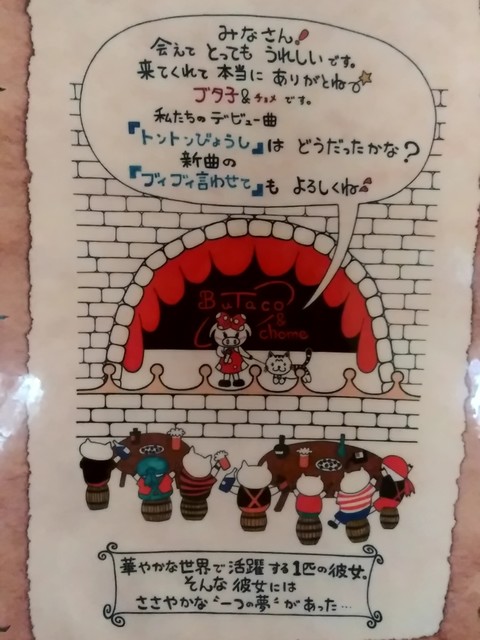 みなさん!
会えて とっても うれしい です。
来てくれて 本当に ありがとね☆
ブタ子 & チョメ です。
私たちの デビュー曲
『トントンびょうし』は どうだったかな?
新曲の
『ブイブイ言わせて』も よろしくね
BuTaco
&
chome
華やかな世界で活躍する1匹の彼女。
そんな彼女には
ささやかな“一つの夢”があった…